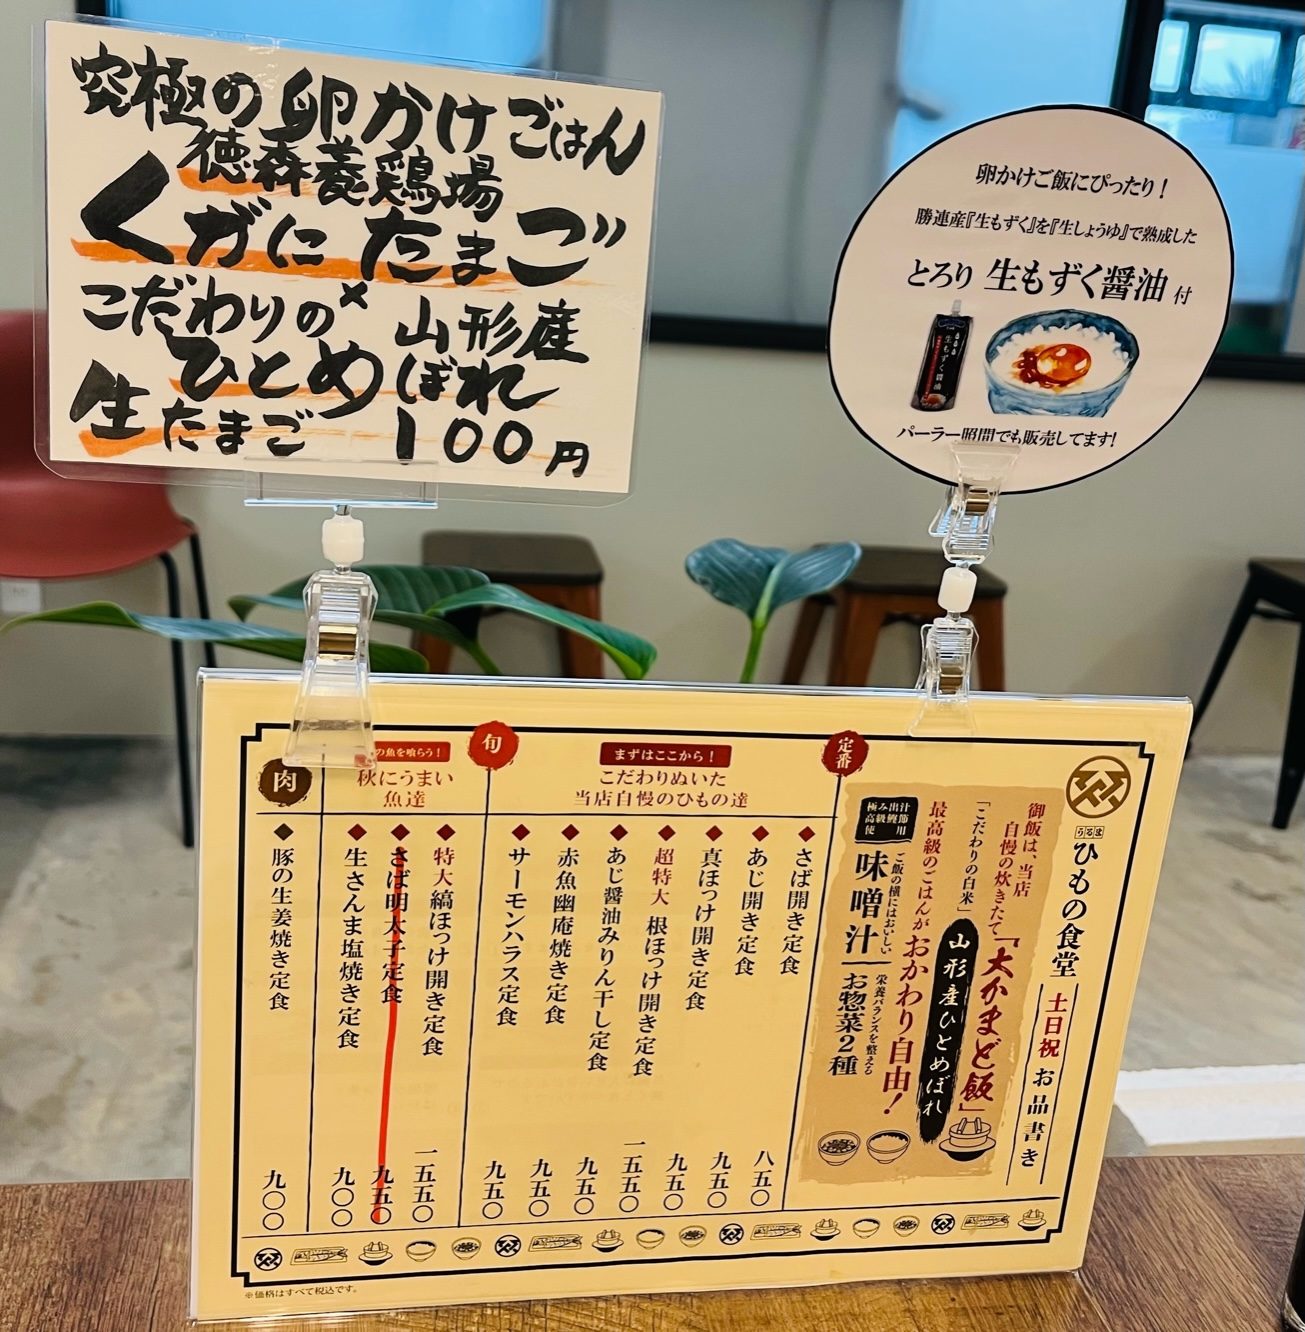 究極の卵かけごはん
徳森養鶏場
くがにたまご
×
こだわりの山形産
ひとめぼれ
生たまご 100円
卵かけご飯にぴったり！
勝連産『生もずく』を『生しょうゆ』で熟成した
とろり 生もずく醤油 付
生もずく醤油
パーラー照間でも販売してます!
うるま
ひもの食堂
土日祝 お品書き
御飯は、当店
自慢の炊きたて「大かまど飯」
「こだわりの白米」山形産ひとめぼれ
最高級のごはんがおかわり自由！
極み出汁
高級鰹節
使用
ご飯の横にはおいしい
味噌汁
栄養バランスを整える
お惣菜2種
定番
まずはここから！
こだわりぬいた
当店自慢のひもの達
さば開き定食 八五〇
あじ開き定食 九五〇
真ほっけ開き定食 九五〇
超特大 根ほっけ開き定食 一五五〇
あじ醤油みりん干し定食 九五〇
赤魚幽庵焼き定食 九五〇
サーモンハラス定食 九五〇
旬
の魚を喰らう！
秋にうまい
魚達
特大縞ほっけ開き定食 一五五〇
さば明太子定食 九五〇
生さんま塩焼き定食 九〇〇
肉
豚の生姜焼き定食 九〇〇
※価格はすべて税込です。